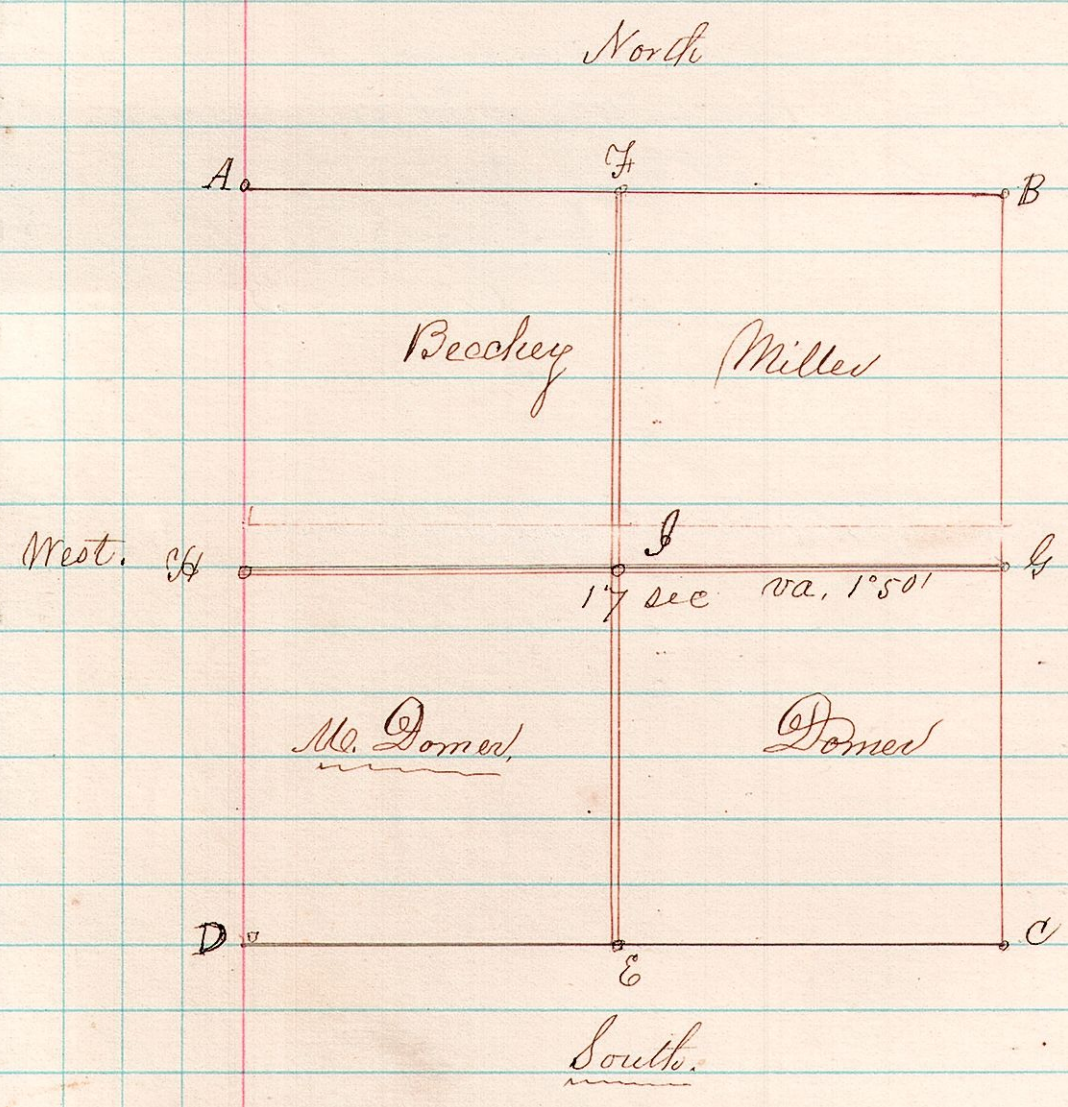 North
A F B
Beechey Miller
West. H I G
17 sec va. 1°50'
M. Domer, Domer
D E C
South.